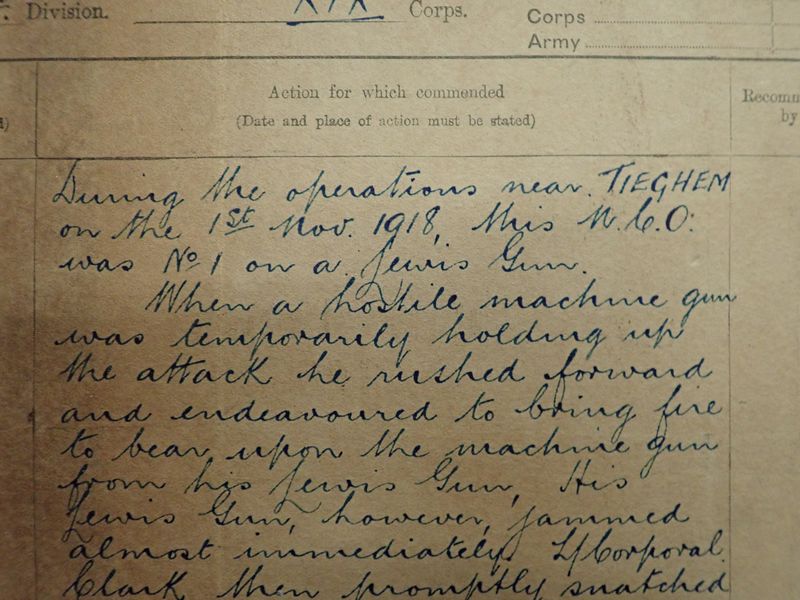 Division. XIX Corps.
Corps
Army
Action for which commended
(Date and place of action must be stated)
Recomm
by
During the operations near TIEGHEM
on the 1st Nov. 1918, this N.C.O.
was No 1 on a Lewis Gun.
When a hostile machine gun
was temporarily holding up
the attack he rushed forward
and endeavoured to bring fire
to bear upon the machine gun
from his Lewis Gun, His
Lewis Gun, however, jammed
almost immediately. L/Corporal
Clark then promptly snatched